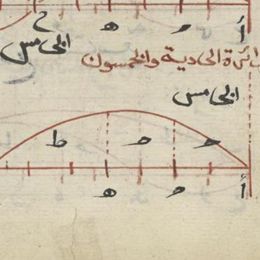 أ و ه
الخامس
ائرة الحادية والخمسون
الخامس
ح ح ط
أ و ه